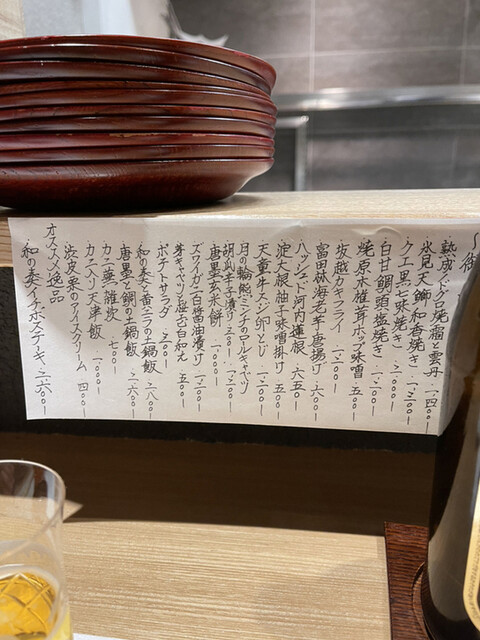 熟成ノドグロ焼霜雲丹 一、四〇〇ー
氷見天鰤和香焼き 一、二〇〇ー
クエ黒七味焼き 二、〇〇〇ー
白甘鯛頭塩焼き 一、二〇〇ー
焼原木椎茸ホップ味噌 五〇〇ー
坂越カキフライ 一、二〇〇ー
富田林海老芋唐揚げ 六〇〇ー
ハッシンド河内蓮根 六五〇ー
淀大根柚子味噌掛け 五〇〇ー
天童牛スジ卵とじ 一、二〇〇ー
月の輪熊ミンチのロールキャベツ 一、二〇〇ー
胡瓜辛子漬け 三〇〇ー
唐墨玄米餅 一、〇〇〇ー
ズワイガニ白醤油漬け 一、二〇〇ー
芽キャベツと塩芯白和え 五〇〇ー
ポテトサラダ 三〇〇ー
和の奏へ黄ニラの土鍋飯 二、八〇〇ー
唐墨と鯛の土鍋飯 二、六〇〇ー
カニ蕪雑炊 七〇〇ー
カニ入り天津飯 一、〇〇〇ー
渋皮栗のアイスクリーム 四〇〇ー
オススメ逸品
和の奏へイチボステーキ 二、六〇〇ー